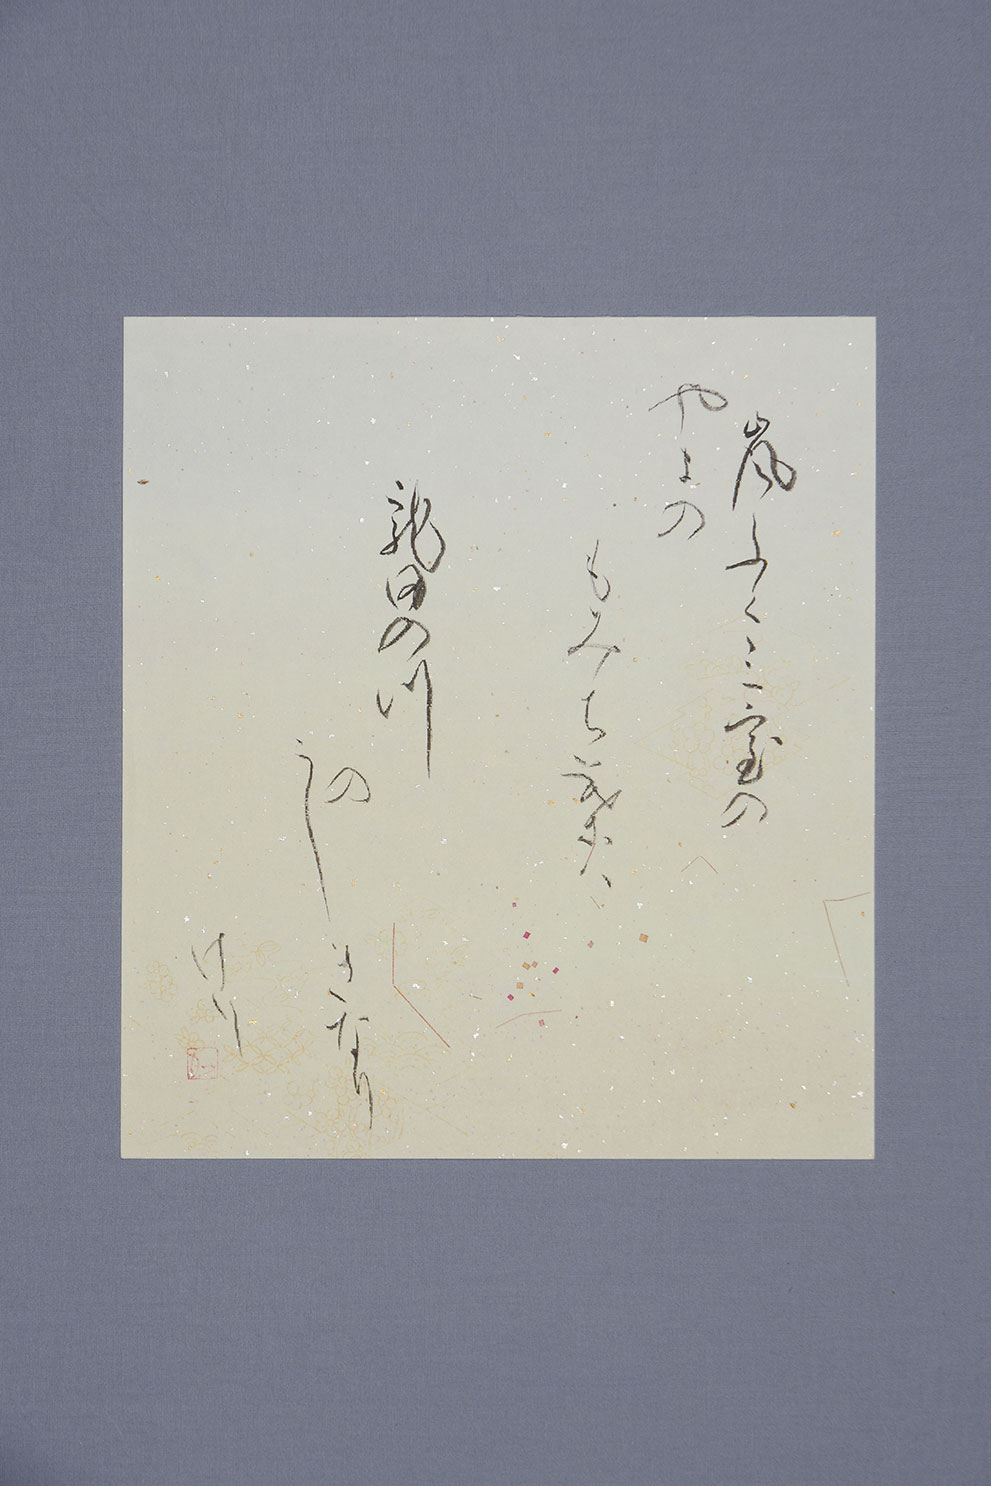 嵐ふくミ室の
やまの
もみち葉ハ
龍田の川
の
にし
きなり
けり